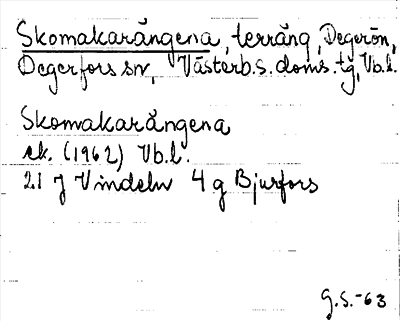 Skomakarängena, terräng, Degerön,
Degerfors sn, Västerb. s. doms. tg, Vb.l.
Skomakarängena
ek. (1962) Vb.l.
21 J Vindeln 4 g Bjurfors
G.S.-63